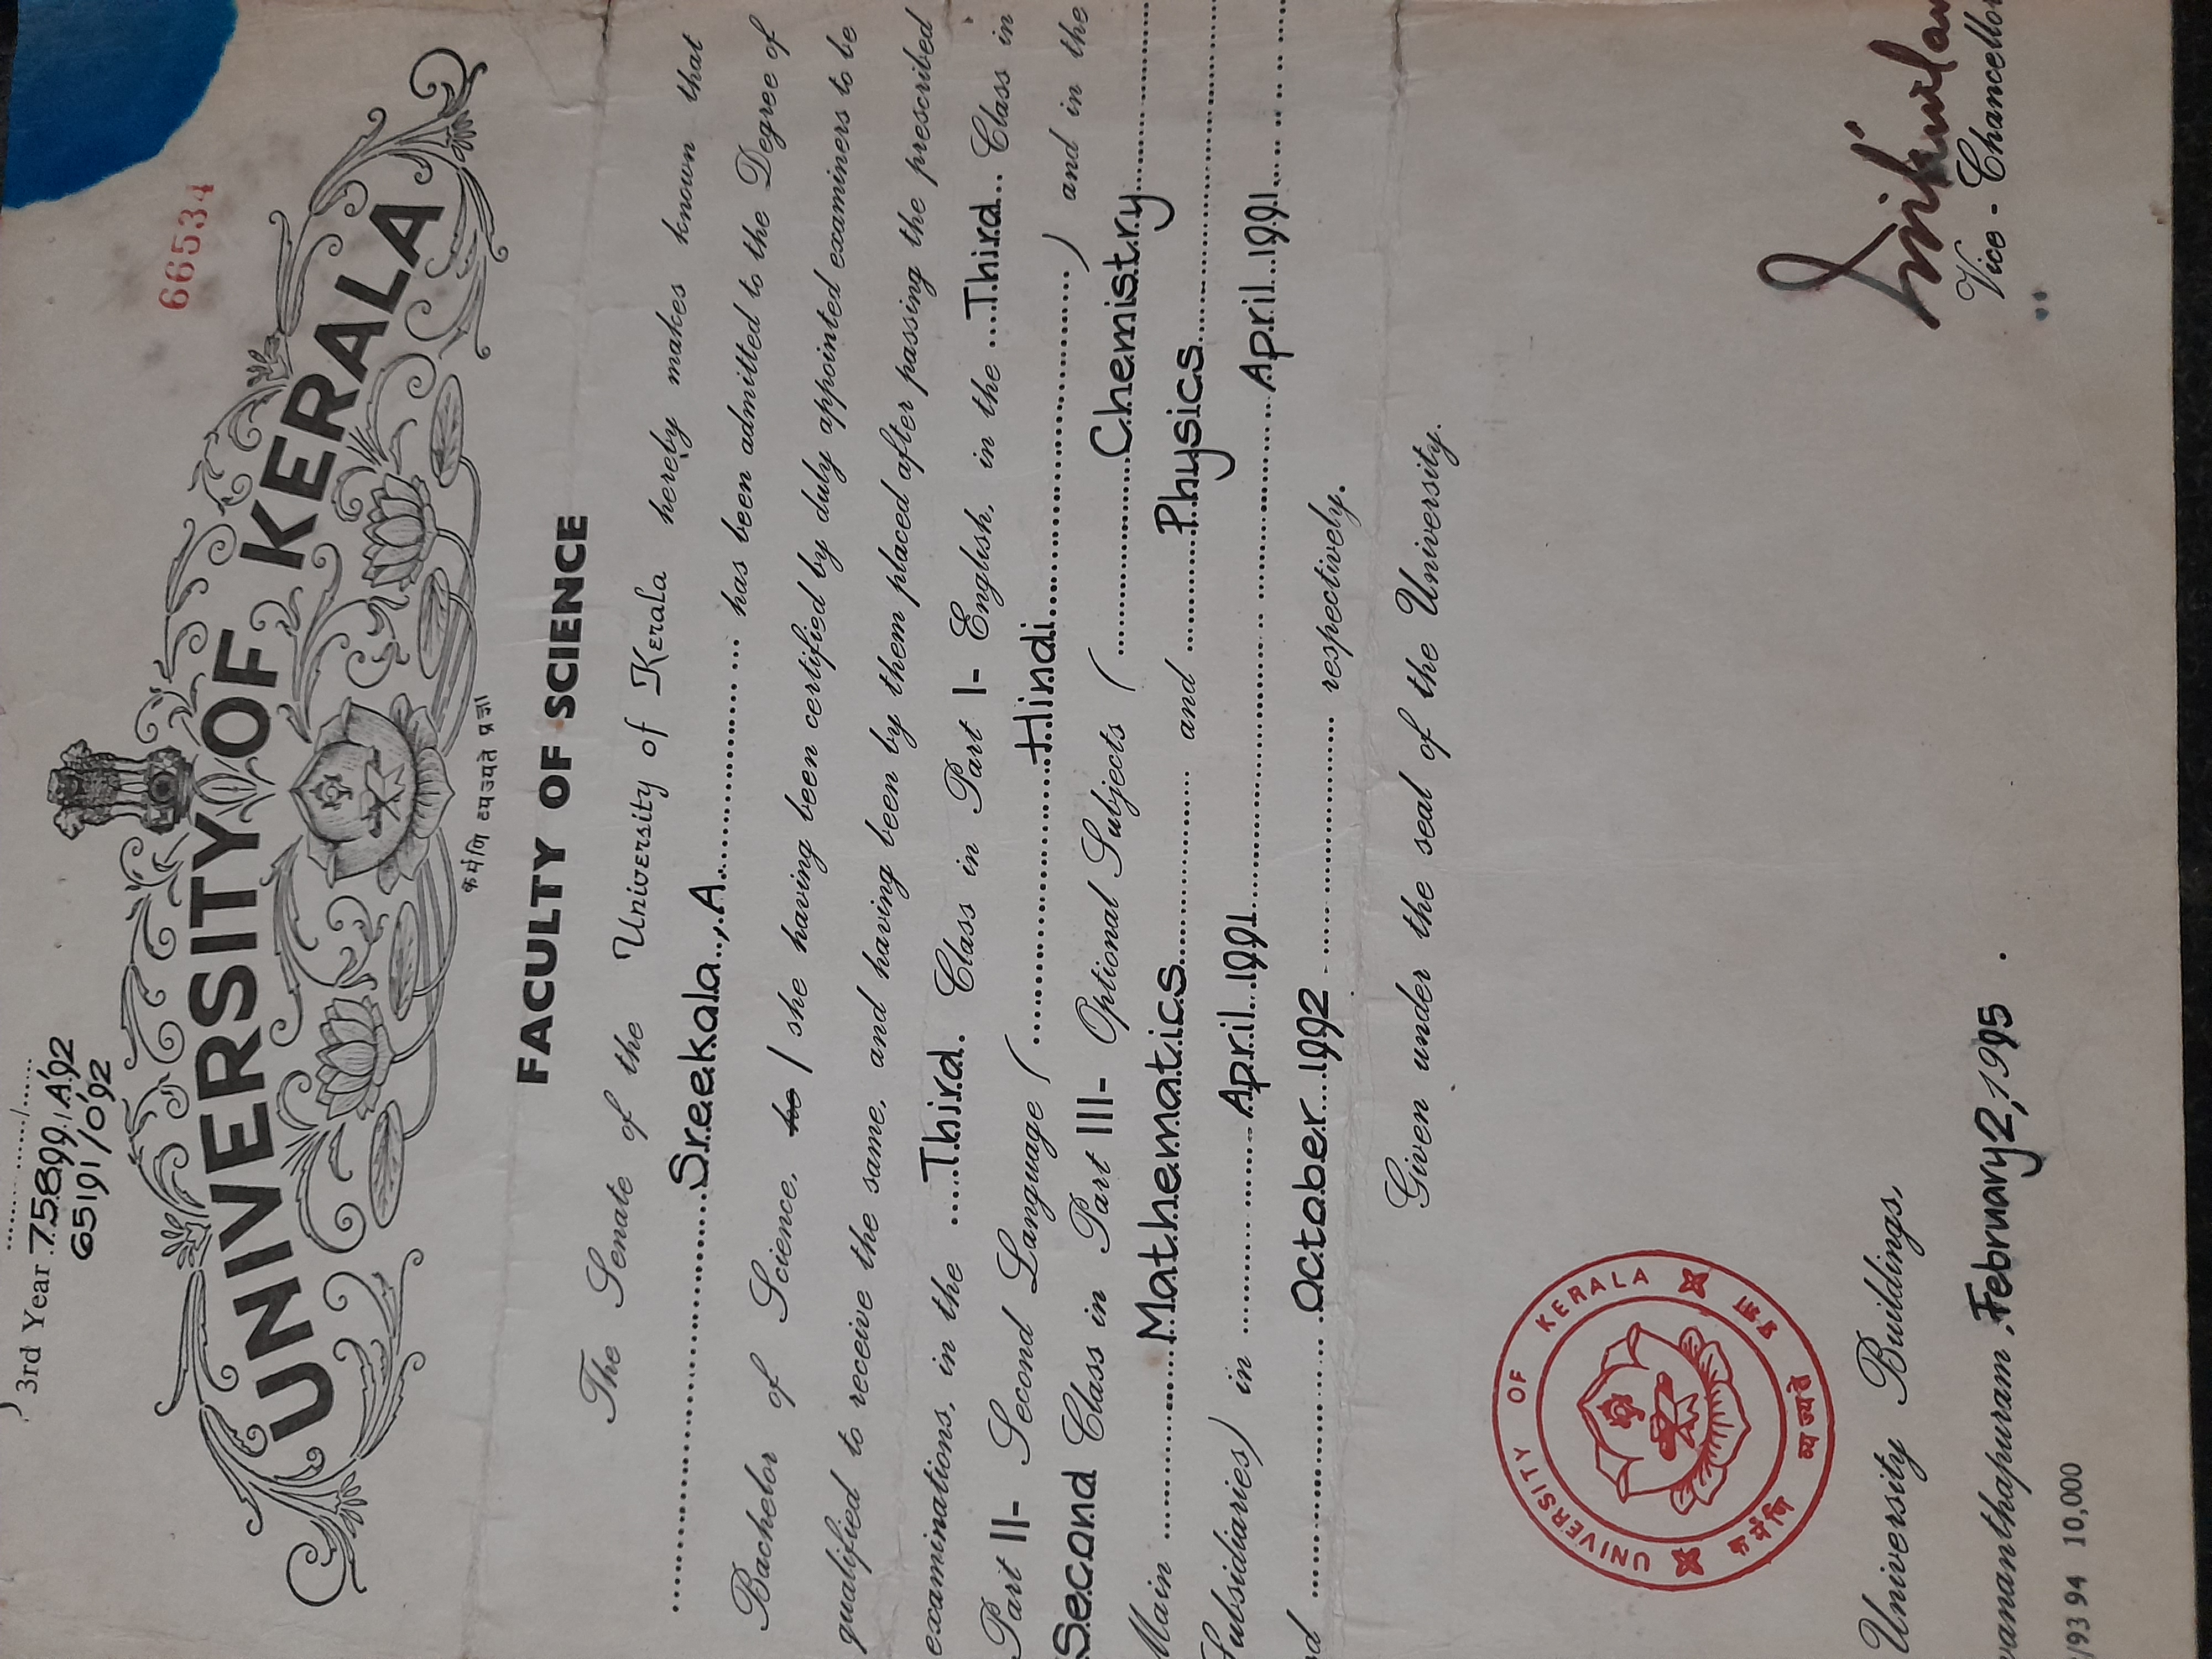 3rd Year 75899/A'92
65191/O'92
66534
UNIVERSITY OF KERALA
कर्मणि व्यज्यते प्रज्ञा
FACULTY OF SCIENCE
The Senate of the University of Kerala hereby makes known that
Sreekala, A. has been admitted to the Degree of
Bachelor of Science, he / she having been certified by duly appointed examiners to be
qualified to receive the same, and having been by them placed after passing the prescribed
examinations, in the Third Class in Part I- English, in the Third Class in
Part II- Second Language (Hindi) and in the
Second Class in Part III- Optional Subjects (Chemistry
Main Mathematics and Physics
Subsidiaries) in April 1991 April 1991
October 1992 respectively.
Given under the seal of the University.
UNIVERSITY OF KERALA
कर्मणि व्यज्यते
University Buildings,
vananthapuram, February 2, 1995.
Vice - Chancellor
/93 94 10,000